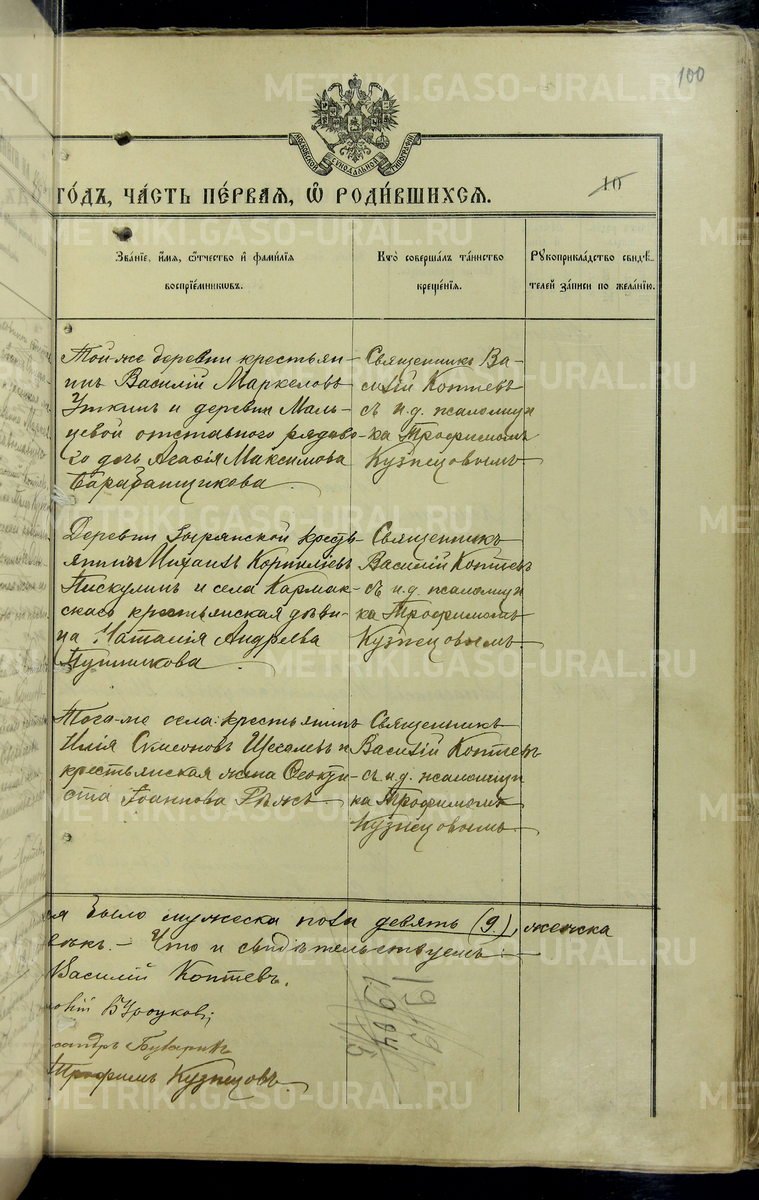 100
МОСКОВСКОЙ СѴНОДАЛЬНОЙ ТИПОГРАФІИ
го́дъ, ча́сть пе́рвая, ѡ҆ роди́вшихся.
10
Зва́нїе, и҆́мѧ, ѻ҆́тчество и҆ фами́лїѧ
воспрїе́мниковъ.
Кто̀ соверша́лъ та́инство
креще́нїѧ.
Рꙋкоприкла́дство свидѣ́-
телей за́писи по жела́нїю.
Той-же деревни крестьян-
инъ Василій Маркеловъ
Уткинъ и деревни Маль-
цевой отставного рядово-
го дочь Агафія Максимова
Барабанщикова.
Священникъ Ва-
силій Коптевъ
съ и.д. псаломщи-
ка Трофимомъ
Кузнецовымъ.
Деревни Зырянской кресть-
янинъ Михаилъ Корниліевъ
Пискулинъ и села Кармак-
скаго крестьянская дѣви-
ца Наталія Андреева
Священникъ
Василій Коптевъ
съ и.д. псаломщи-
ка Трофимомъ
Кузнецовымъ.
Того-же села крестьянинъ
Илія Симеоновъ и
крестьянская жена Ѳеокти-
ста Іоаннова
Священникъ
Василій Коптевъ
съ и.д. псаломщи-
ка Трофимомъ
Кузнецовымъ.
ся было мужеска пола девять (9), женска
вѣкъ. – Что и свидѣтельствуемъ: –
Василій Коптевъ.
сандръ
Трофимъ Кузнецовъ.
1904
METRIKI.GASO-URAL.RU